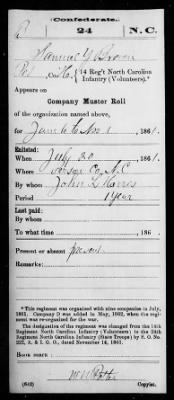 Confederate.
24 N.C.
Samuel Y Brown
Pvt, Co. H, 14 Reg't North Carolina
Infantry (Volunteers).*
Appears on
Company Muster Roll
of the organization named above,
for June 6 to Nov 1, 1861.
Enlisted:
When July 30, 1861.
Where Person Co. N.C.
By whom John L Harris
Period 1 year
Last paid:
By whom
To what time , 186 .
Present or absent present
Remarks:
*This regiment was organized with nine companies in July,
1861. Company D was added in May, 1862, when the regi-
ment was re-organized for the war.
The designation of the regiment was changed from the 14th
Regiment North Carolina Infantry (Volunteers) to the 24th
Regiment North Carolina Infantry (State Troops) by S. O. No.
222, A. & I. G. O., dated November 14, 1861.
Book mark:
(642)
Copyist.